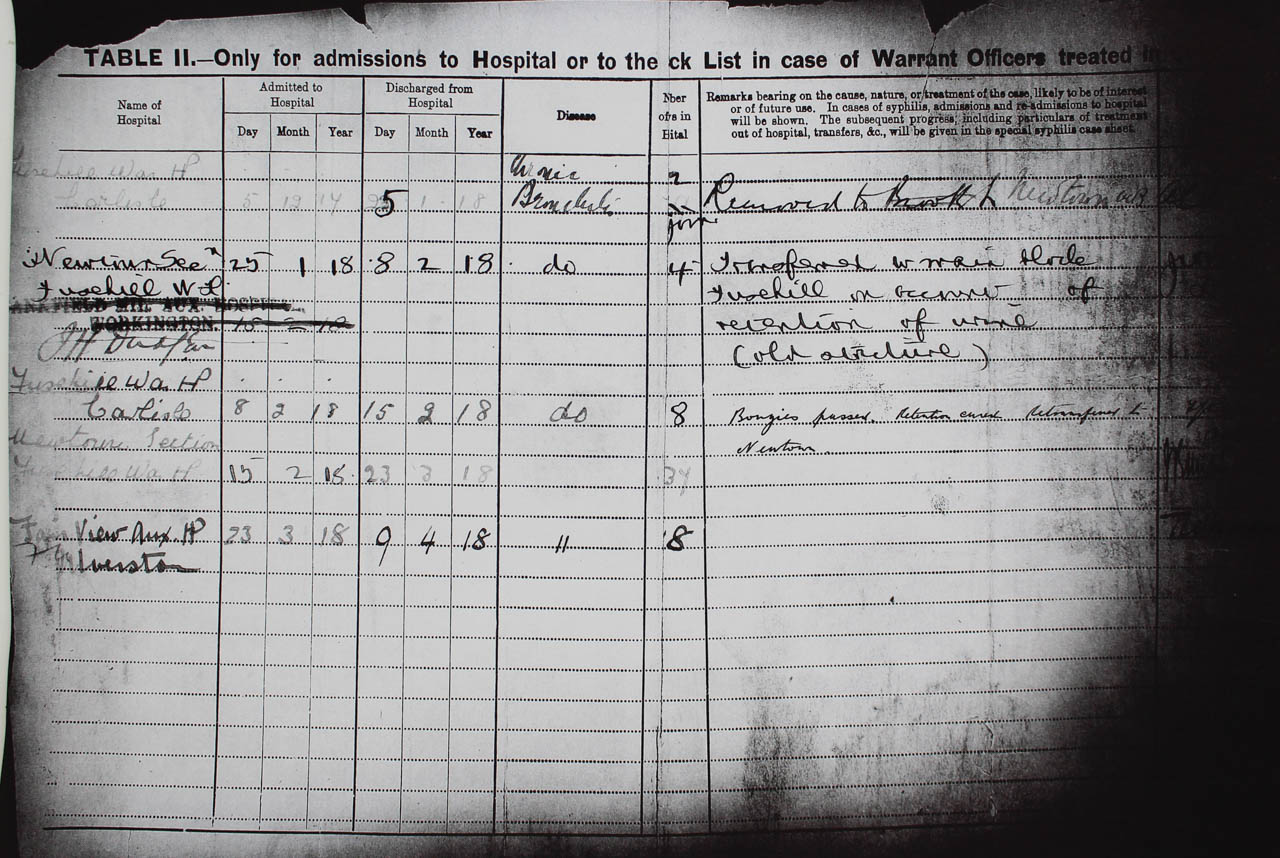 TABLE II.—Only for admissions to Hospital or to the ck List in case of Warrant Officers treated
Name of Hospital
Admitted to Hospital
Discharged from Hospital
Disease
Nber ofrs in Bital
Remarks bearing on the cause, nature, or treatment of the case, likely to be of interest
or of future use. In cases of syphilis, admissions and re-admissions to hospital
will be shown. The subsequent progress, including particulars of treatment
out of hospital, transfers, &c., will be given in the special syphilis case sheet.
Day Month Year Day Month Year
Fusehill War H
Carlisle 5 12 17 5 1 18 Bronchitis Removed to Newtown
"Newtown Sec" 25 1 18 8 2 18 do 4 Transferred to main block
Fusehill W H Fusehill on account of
MIL. AUX. HOSPITAL
WORKINGTON. 18 2 18 retention of urine
(old stricture)
Fusehill War H
Carlisle 8 2 18 15 2 18 do 8 Bougies passed. Retention cured. Retransferred to
Newtown Section Newtown
Fusehill War H 15 2 18 23 3 18 37
Fair View Aux H 23 3 18 9 4 18 " 18
Ulverston